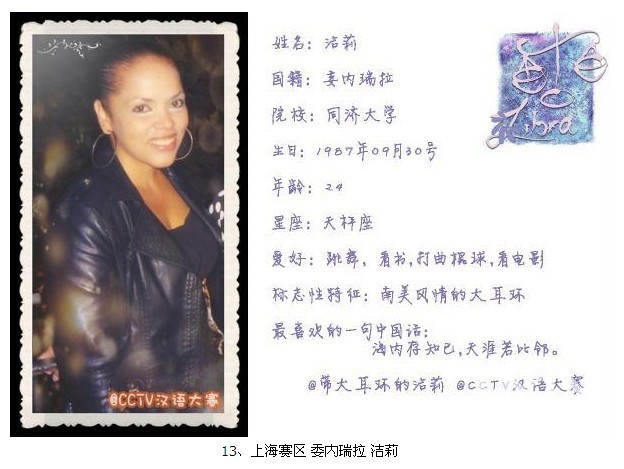 @CCTV汉语大赛
姓名：洁莉
国籍：委内瑞拉
院校：同济大学
生日：1987年09月30号
年龄：24
星座：天秤座
Libra
爱好：跳舞，看书,打曲棍球,看电影
标志性特征：南美风情的大耳环
最喜欢的一句中国话：
海内存知己,天涯若比邻。
@带大耳环的洁莉 @CCTV汉语大赛
13、上海赛区 委内瑞拉 洁莉